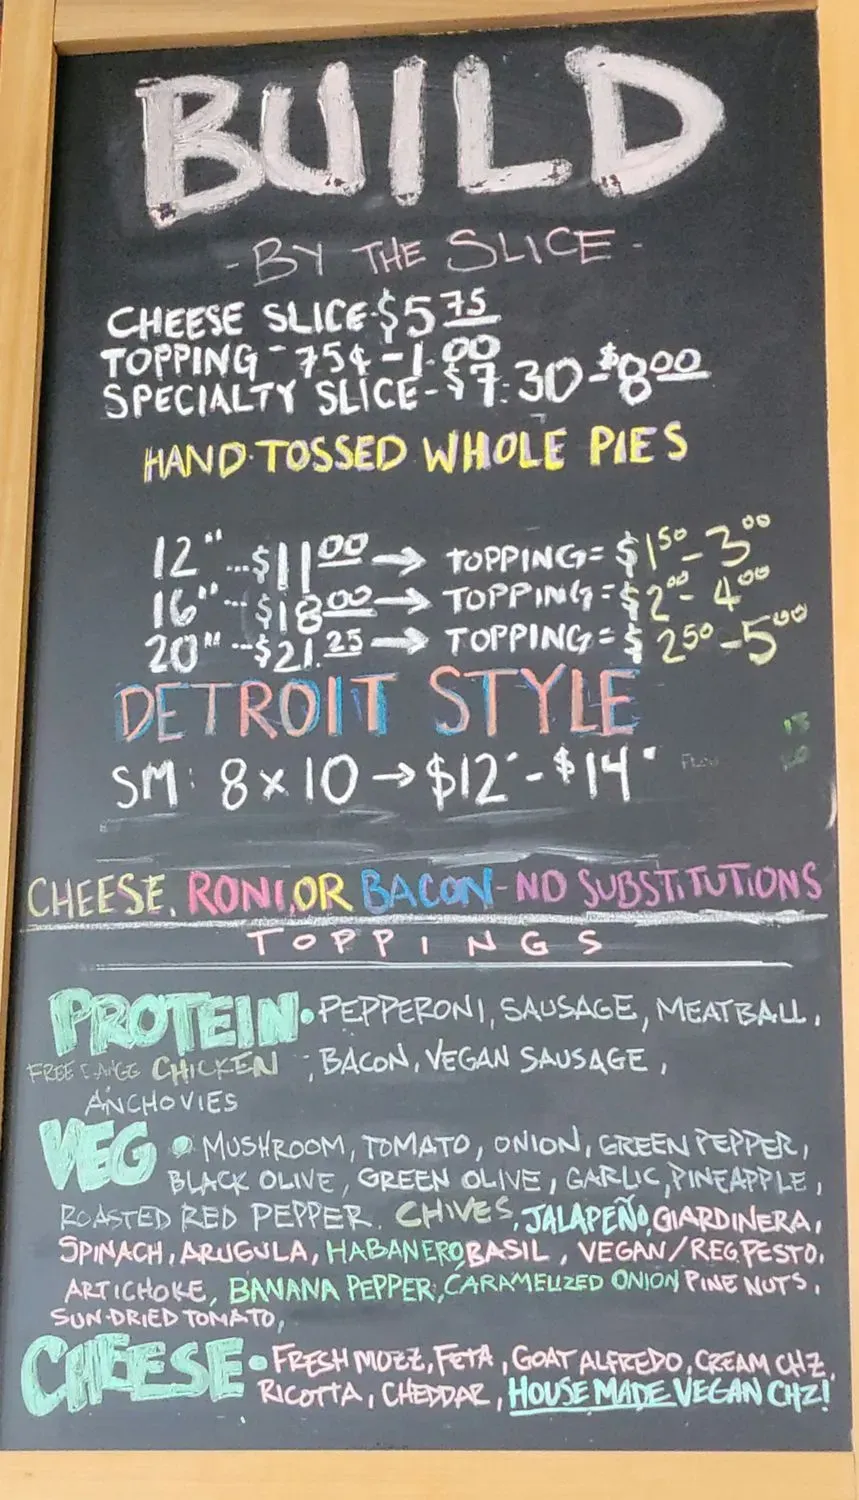 BUILD
- BY THE SLICE -
CHEESE SLICE-$5 75
TOPPING - 75¢ - 1.00
SPECIALTY SLICE - $7.30-$8 00
HAND-TOSSED WHOLE PIES
12" ...$11 00 → TOPPING= $1 50 - 3 00
16" ... $18 00 → TOPPING = $2 00 - 4 00
20" ... $21.25 → TOPPING = $ 2 50 - 5 00
DETROIT STYLE
SM: 8 x 10 → $12 - $14
CHEESE, RONI, OR BACON - NO SUBSTITUTIONS
TOPPINGS
PROTEIN • PEPPERONI, SAUSAGE, MEATBALL,
FREE CHICKEN, BACON, VEGAN SAUSAGE,
ANCHOVIES
VEG • MUSHROOM, TOMATO, ONION, GREEN PEPPER,
BLACK OLIVE, GREEN OLIVE, GARLIC, PINEAPPLE,
ROASTED RED PEPPER, CHIVES, JALAPEÑO, GIARDINERA,
SPINACH, ARUGULA, HABANERO, BASIL, VEGAN/REG PESTO,
ARTICHOKE, BANANA PEPPER, CARAMELIZED ONION PINE NUTS,
SUN-DRIED TOMATO,
CHEESE • FRESH MOZZ, FETA, GOAT ALFREDO, CREAM CHZ,
RICOTTA, CHEDDAR, HOUSE MADE VEGAN CHZ!